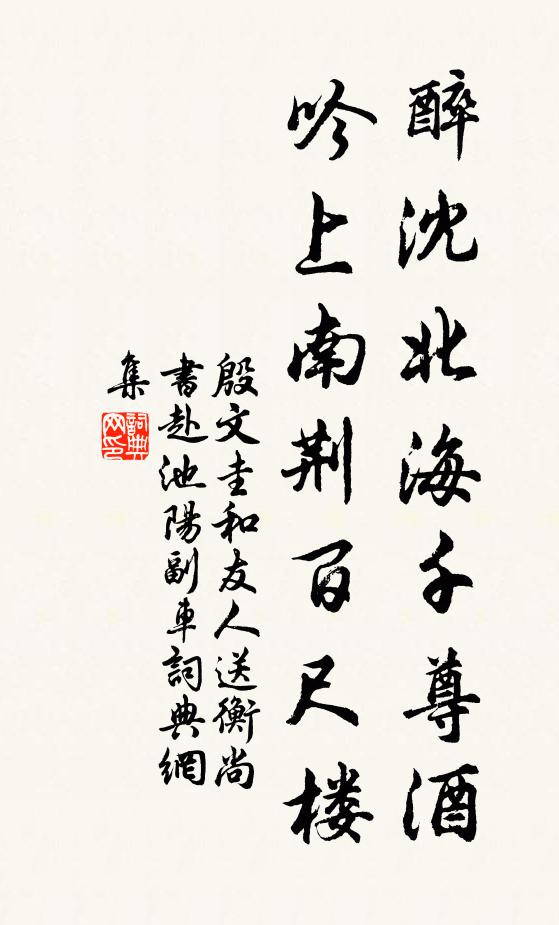 醉沈北海千尊酒
吟上南荆百尺楼
殷文圭和友人送衡尚
書赴池陽副車詞典網
集
詞典網印